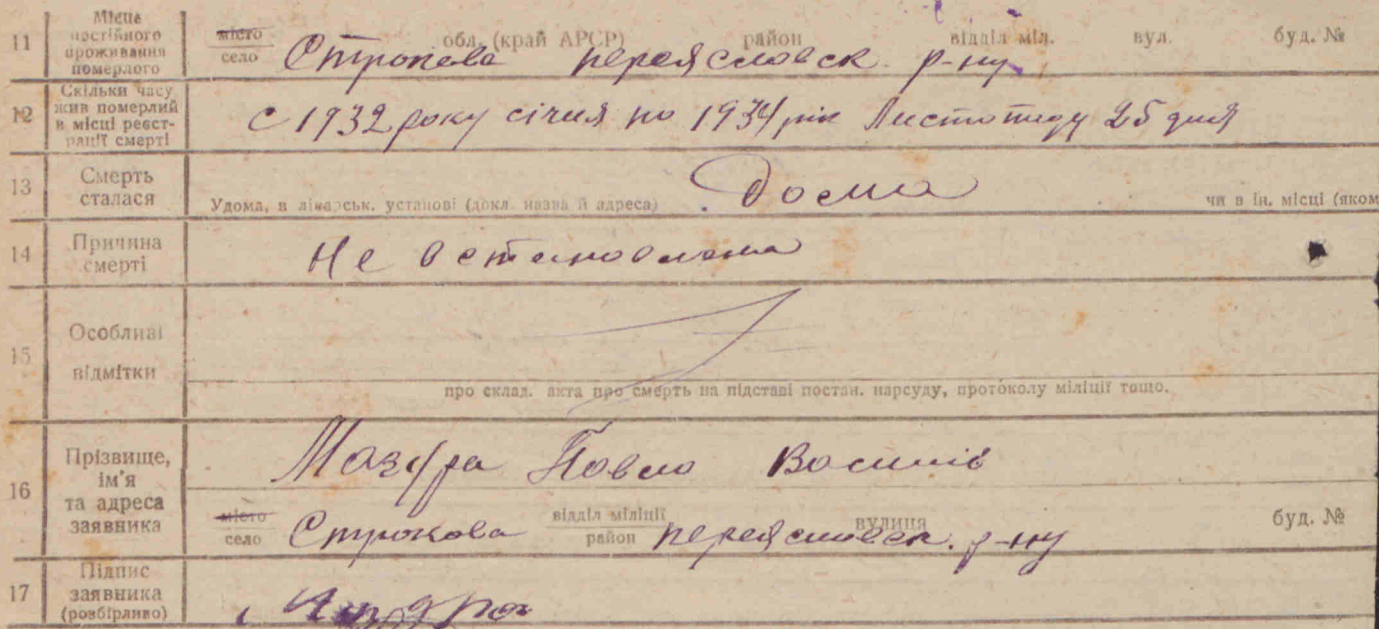 11 Місце постійного проживання померлого місто село обл. (край АРСР) район відділ міл. вул. буд. №
Строкова переясловск. р-ну
12 Скільки часу жив померлий в місці реєстрації смерті С 1932 року січня по 1934 рік Листопаду 25 дня
13 Смерть сталася Удома, в лікарськ. установі (докл. назва й адреса) Дома чи в ін. місці (яком
14 Причина смерті Не встановлена
15 Особливі відмітки
про склад. акта про смерть на підставі постан. нарсуду, протоколу міліції тощо.
16 Прізвище, ім'я та адреса заявника Мазура Павло Васильів
місто село Строкова відділ міліції район переясловск. р-ну вулиця буд. №
17 Підпис заявника (розбірливо)